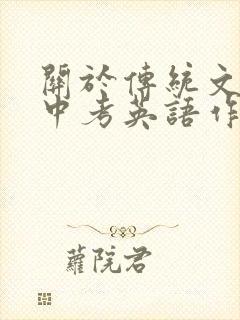 關於傳統文
中考英語作
蘿院君